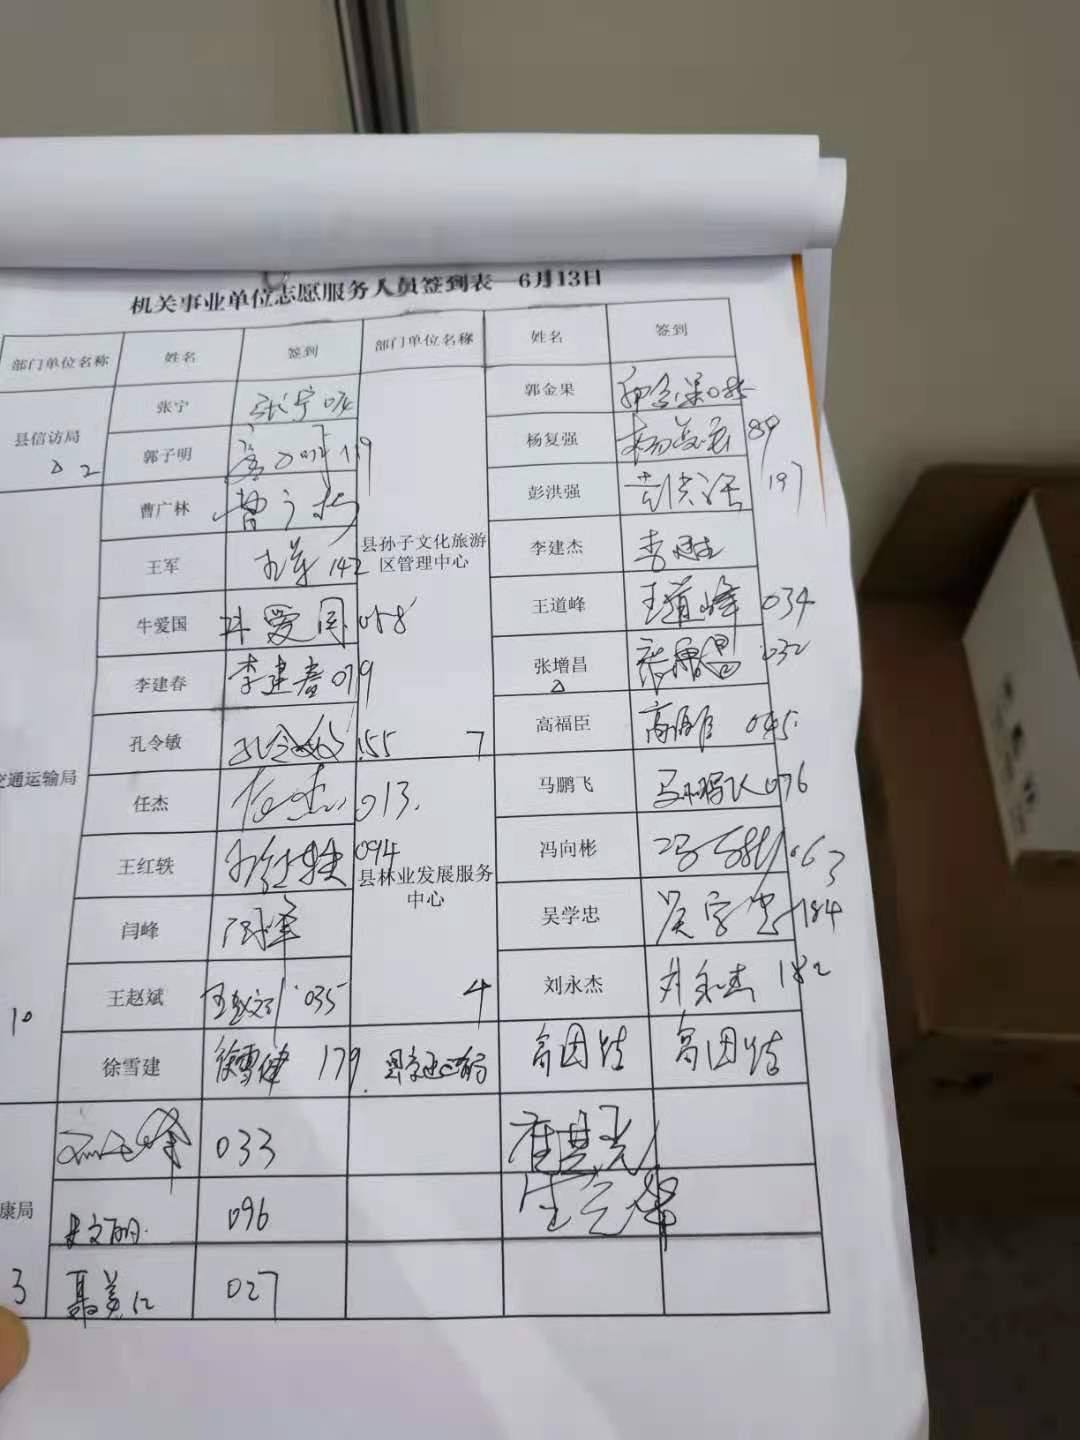 机关事业单位志愿服务人员签到表—6月13日
部门单位名称 姓名 签到 部门单位名称 姓名 签到
县信访局 2
张宁 张宁
郭子明 119
交通运输局 10
曹广林 曹广林
王军 王军 142
牛爱国 牛爱国 058
李建春 李建春 079
孔令敏 孔令敏 155
任杰 任杰 013
王红轶 王红轶 094
闫峰 闫峰
王赵斌 王赵斌 035
徐雪建 徐雪健 179
康局 3
033
096
027
县孙子文化旅游
区管理中心 7
郭金果 郭金果 085
杨复强 杨复强 89
彭洪强 彭洪强 197
李建杰 李建杰
王道峰 王道峰 034
张增昌 张增昌 032
高福臣 高福臣 045
县林业发展服务
中心 4
马鹏飞 马鹏飞 076
冯向彬 冯向彬 063
吴学忠 吴学忠 184
刘永杰 刘永杰 182